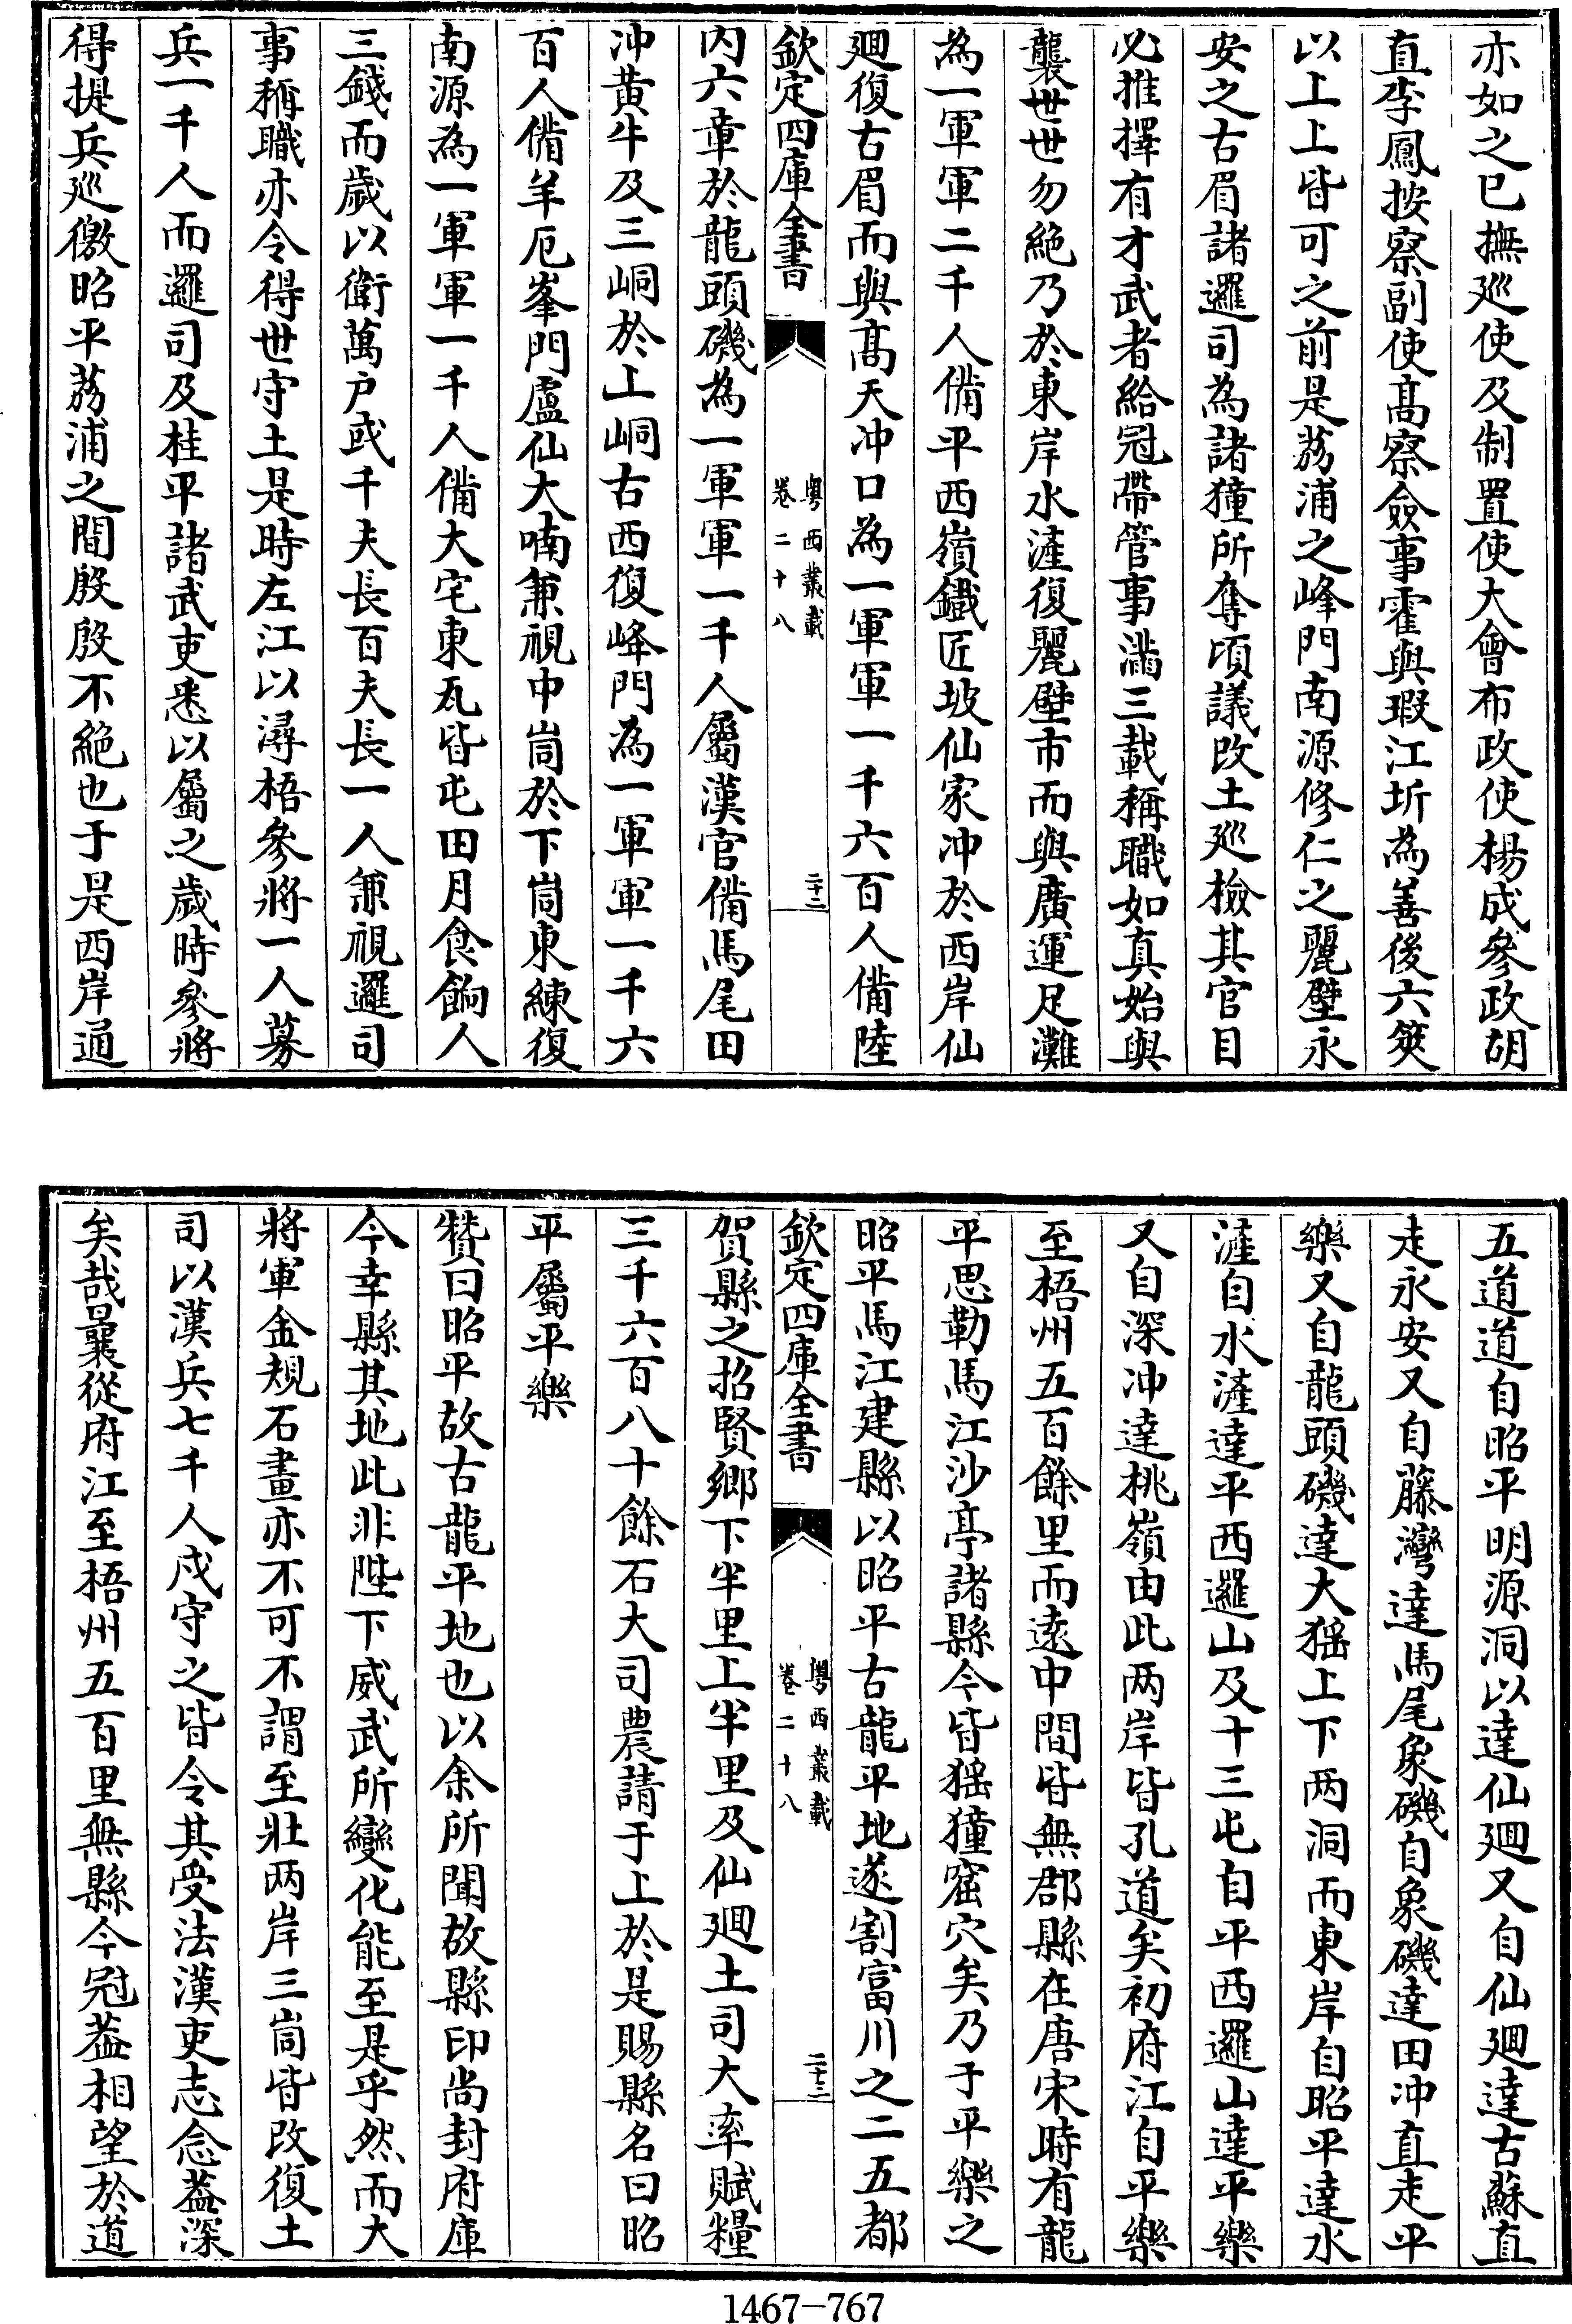 亦如之已撫廵使及制置使大會布政使楊成參政胡
直李鳳按察副使髙察僉事霍與瑕江圻為善後六筴
以上上皆可之前是荔浦之峰門南源修仁之麗壁永
安之古眉諸邏司為諸獞所奪頃議改土廵檢其官目
必推擇有才武者給冠帶管事滿三載稱職如真始與
襲世世勿絶乃於東岸水滻復麗壁市而與廣運足灘
為一軍軍二千人備平西嶺鐵匠坡仙家冲於西岸仙
廻復古眉而與髙天冲口為一軍軍一千六百人備陸
欽定四庫全書
粤西叢載
卷二十八
二十二
内六章於龍頭磯為一軍軍一千人屬漢官備馬尾田
冲黄牛及三峒於上峒古西復峰門為一軍軍一千六
百人備羊厄峯門盧仙大喃兼視中峝於下峝東練復
南源為一軍軍一千人備大宅東瓦皆屯田月食餉人
三錢而歲以衛萬户或千夫長百夫長一人兼視邏司
事稱職亦令得世守土是時左江以潯梧參將一人募
兵一千人而邏司及桂平諸武吏悉以屬之歲時參將
得提兵廵徼昭平荔浦之間殷殷不絶也于是西岸通
五道道自昭平明源洞以達仙廻又自仙廻達古蘇直
走永安又自藤灣達馬尾象磯自象磯達田冲直走平
樂又自龍頭磯達大猺上下两洞而東岸自昭平達水
滻自水滻達平西邏山及十三屯自平西邏山達平樂
又自深冲達桃嶺由此两岸皆孔道矣初府江自平樂
至梧州五百餘里而逺中間皆無郡縣在唐宋時有龍
平思勒馬江沙亭諸縣今皆猺獞窟穴矣乃于平樂之
昭平馬江建縣以昭平古龍平地遂割富川之二五都
欽定四庫全書
粤西叢載
卷二十八
二十三
賀縣之招賢鄉下半里上半里及仙廻土司大率賦糧
三千六百八十餘石大司農請于上於是賜縣名曰昭
平屬平樂
贊曰昭平故古龍平地也以余所聞故縣印尚封府庫
今幸縣其地此非陛下威武所變化能至是乎然而大
將軍金規石畫亦不可不謂至壯两岸三峝皆改復土
司以漢兵七千人戍守之皆令其受法漢吏志念葢深
矣哉曩從府江至梧州五百里無縣今冠葢相望於道
1467-767